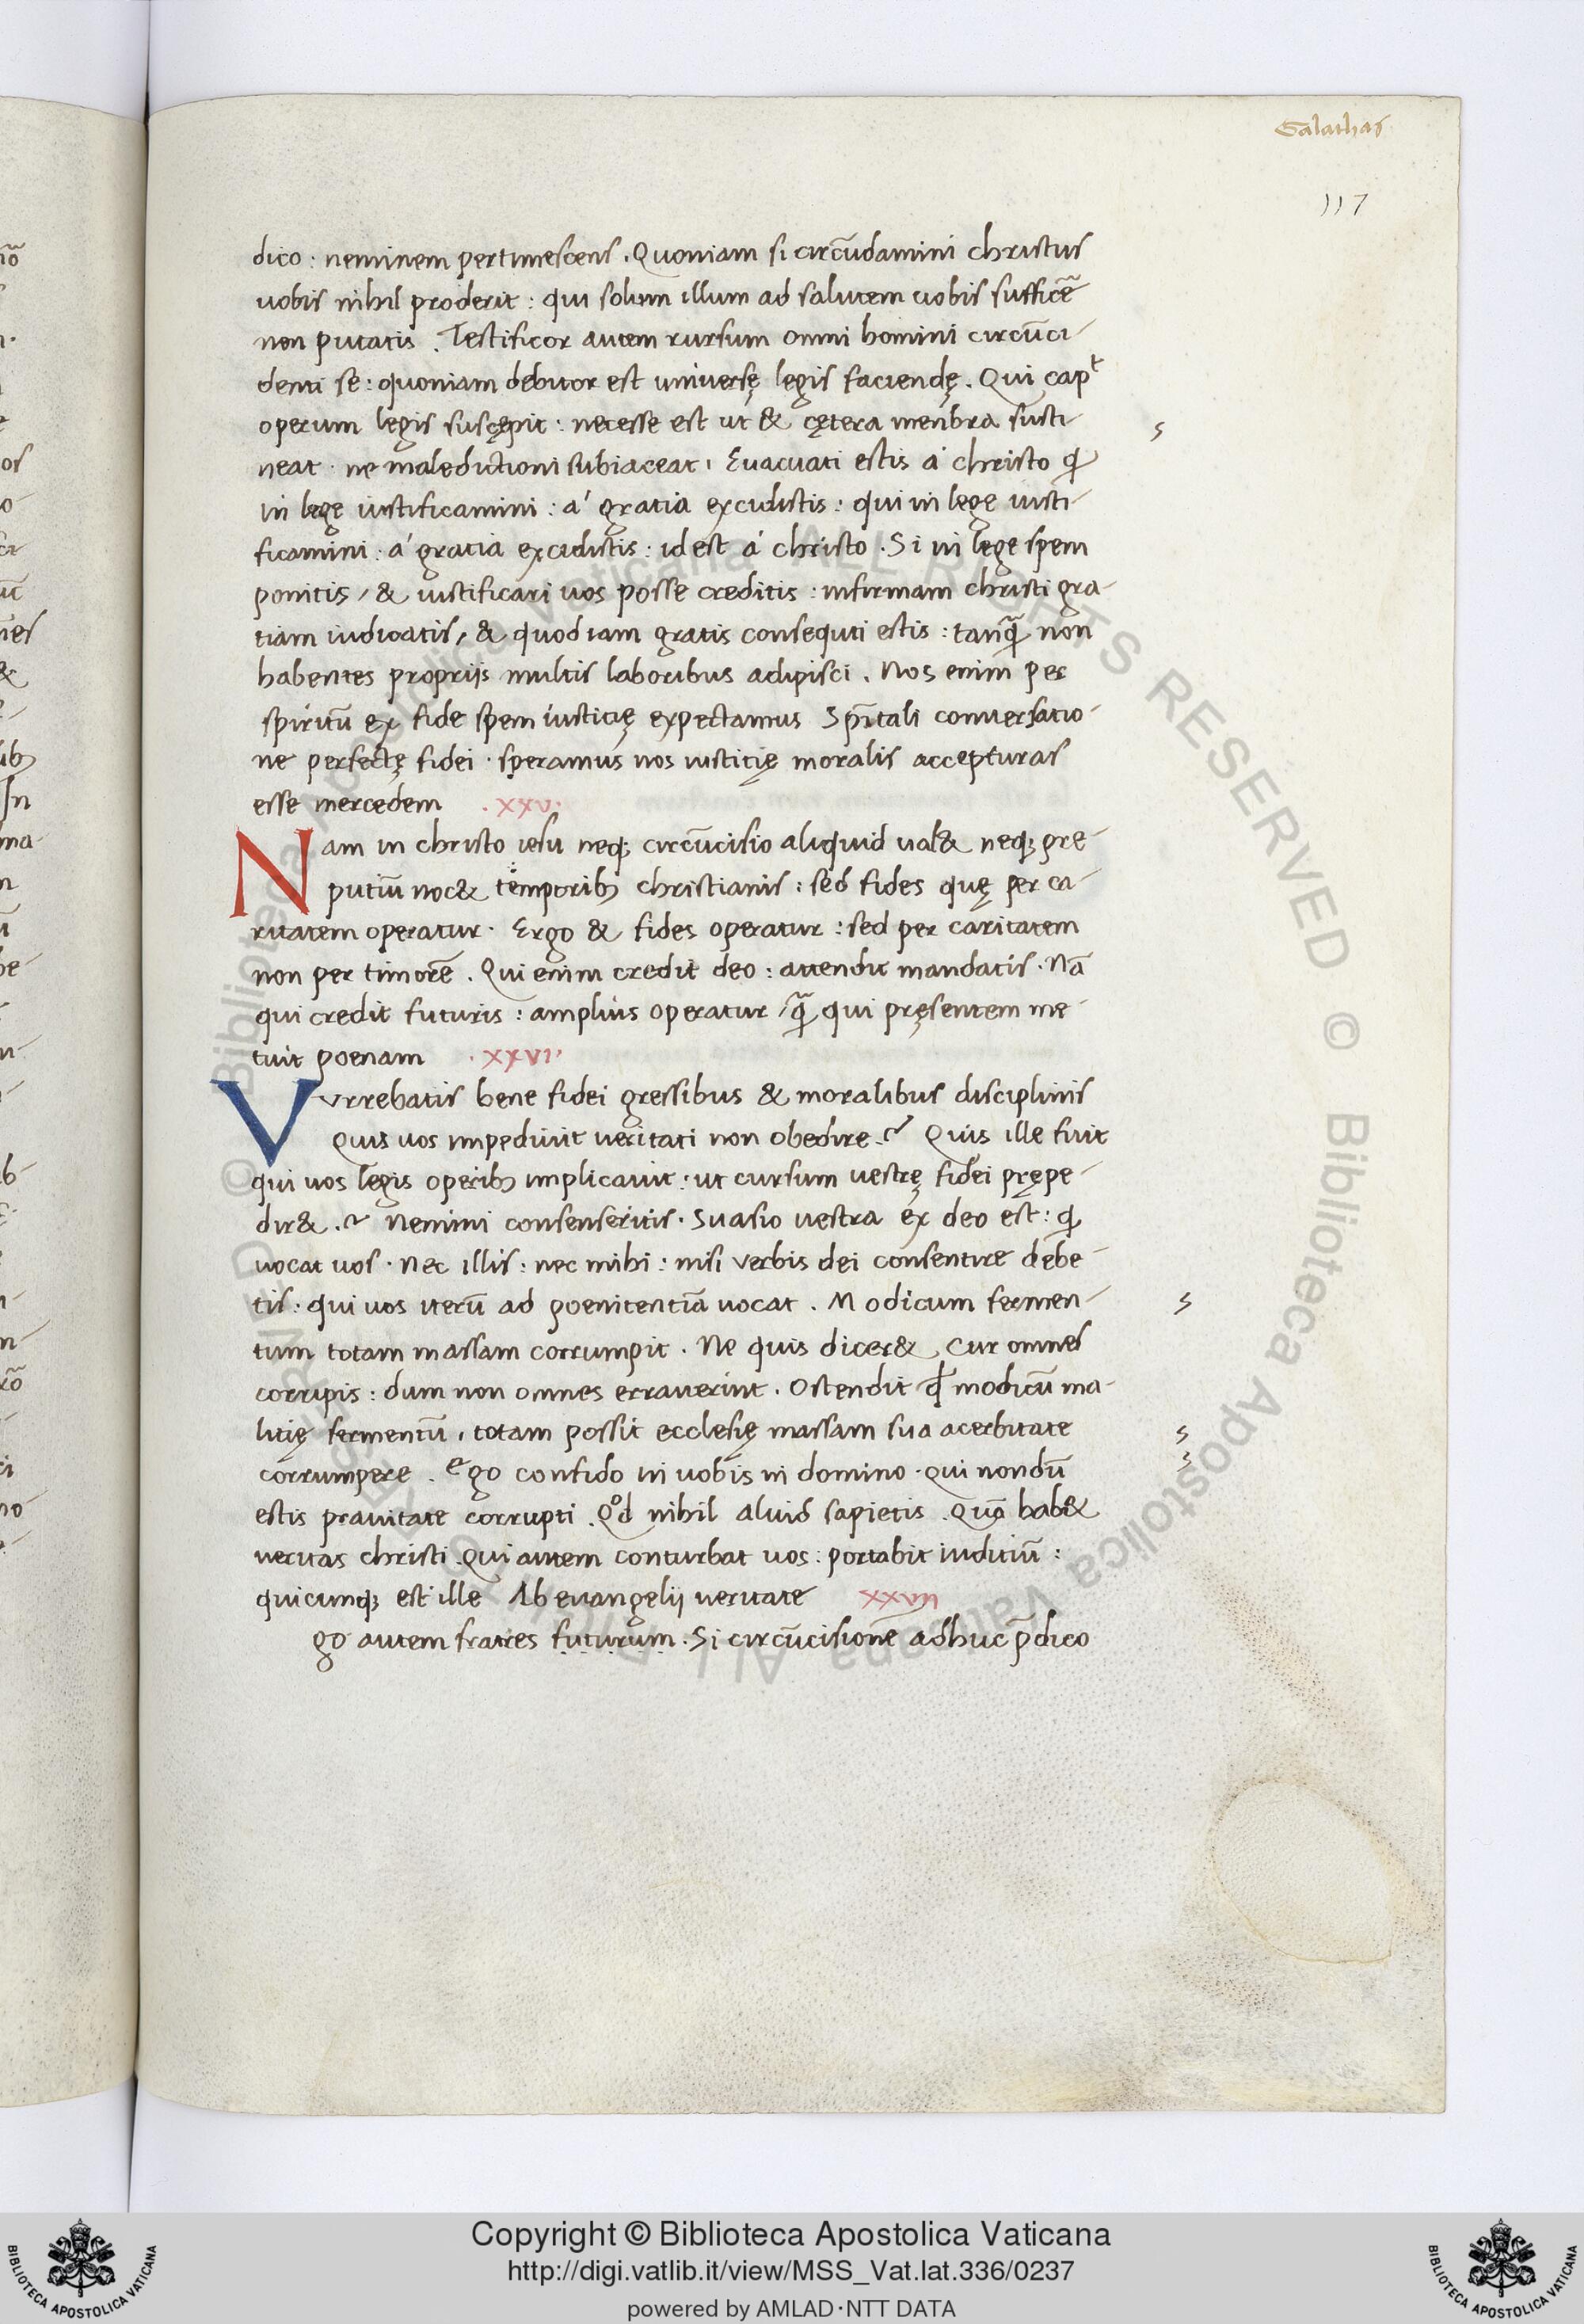 Galathas
117
dico : neminem pertimescens . Quoniam si circũdamini christus
uobis nihil proderit : qui solum illum ad salutem uobis sufficẽ
non putatis . Testificor autem rursum omni homini circũci-
denti se : quoniam debitor est uniuersę legis faciendę . Qui capᵗ
operum legis suscępit : necesse est ut & cętera menbra susti-
neat · ne maledictioni subiaceat . Euacuati estis á christo q̃
in lege iustificamini : á gratia excidistis : qui in lege iusti-
ficamini : á gratia excidistis : id est á christo . Si in lege spem
ponitis / & iustificari uos posse creditis : infirmam christi gra-
tiam iudicatis / & quod iam gratis consequti estis : tanq̃ non
habentes proprijs multis laboribus adipisci . Nos enim per
spiritũ ex fide spem iusticię expectamus Sp̃itali conuersatio-
ne perfectę fidei · speramus nos iusticię moralis accepturas
esse mercedem . xxv .
Nam in christo iesu neq; circũcisio aliquid ual& neq; pre-
putiũ noc& temporib; christianis : sed fides quę per ca-
ritatem operatur . Ergo & fides operatur : sed per caritatem
non per timorẽ . Qui enim credit deo : attendit mandatis . Nã
qui credit futuris : amplius operatur / q̃ qui pręsentem me-
tuit poenam . xxvi .
Vurrebatis bene fidei gressibus & moralibus disciplinis
Quis uos impediuit ueritati non obedire ? Quis ille fuit
qui uos legis operib; implicauit : ut cursum uestrę fidei prępe-
dir& ? Nemini consenseritis . Suasio uestra ex deo est : q̃
uocat uos . Nec illis : nec mihi : nisi verbis dei consentire debe-
tis : qui uos iterũ ad poenitentiã uocat . Modicum fermen-
tum totam massam corrumpit . Ne quis dicer& , Cur omnes
corripis : dum non omnes errauerint . Ostendit qđ modicũ ma-
litię fermentũ , totam possit ecclesię massam sua acerbitate
corrumpere . Ego confido in uobis in domino . qui nondũ
estis prauitate corrupti . Qod nihil aliud sapietis . Quã hab&
ueritas christi . Qui autem conturbat uos : portabit iuditiũ :
quicunq; est ille Ab euangelij ueritate xxvii
go autem fratres futurum . Si circũcisionẽ adhuc p̃dico
Copyright © Biblioteca Apostolica Vaticana
http://digi.vatlib.it/view/MSS_Vat.lat.336/0237
powered by AMLAD·NTT DATA